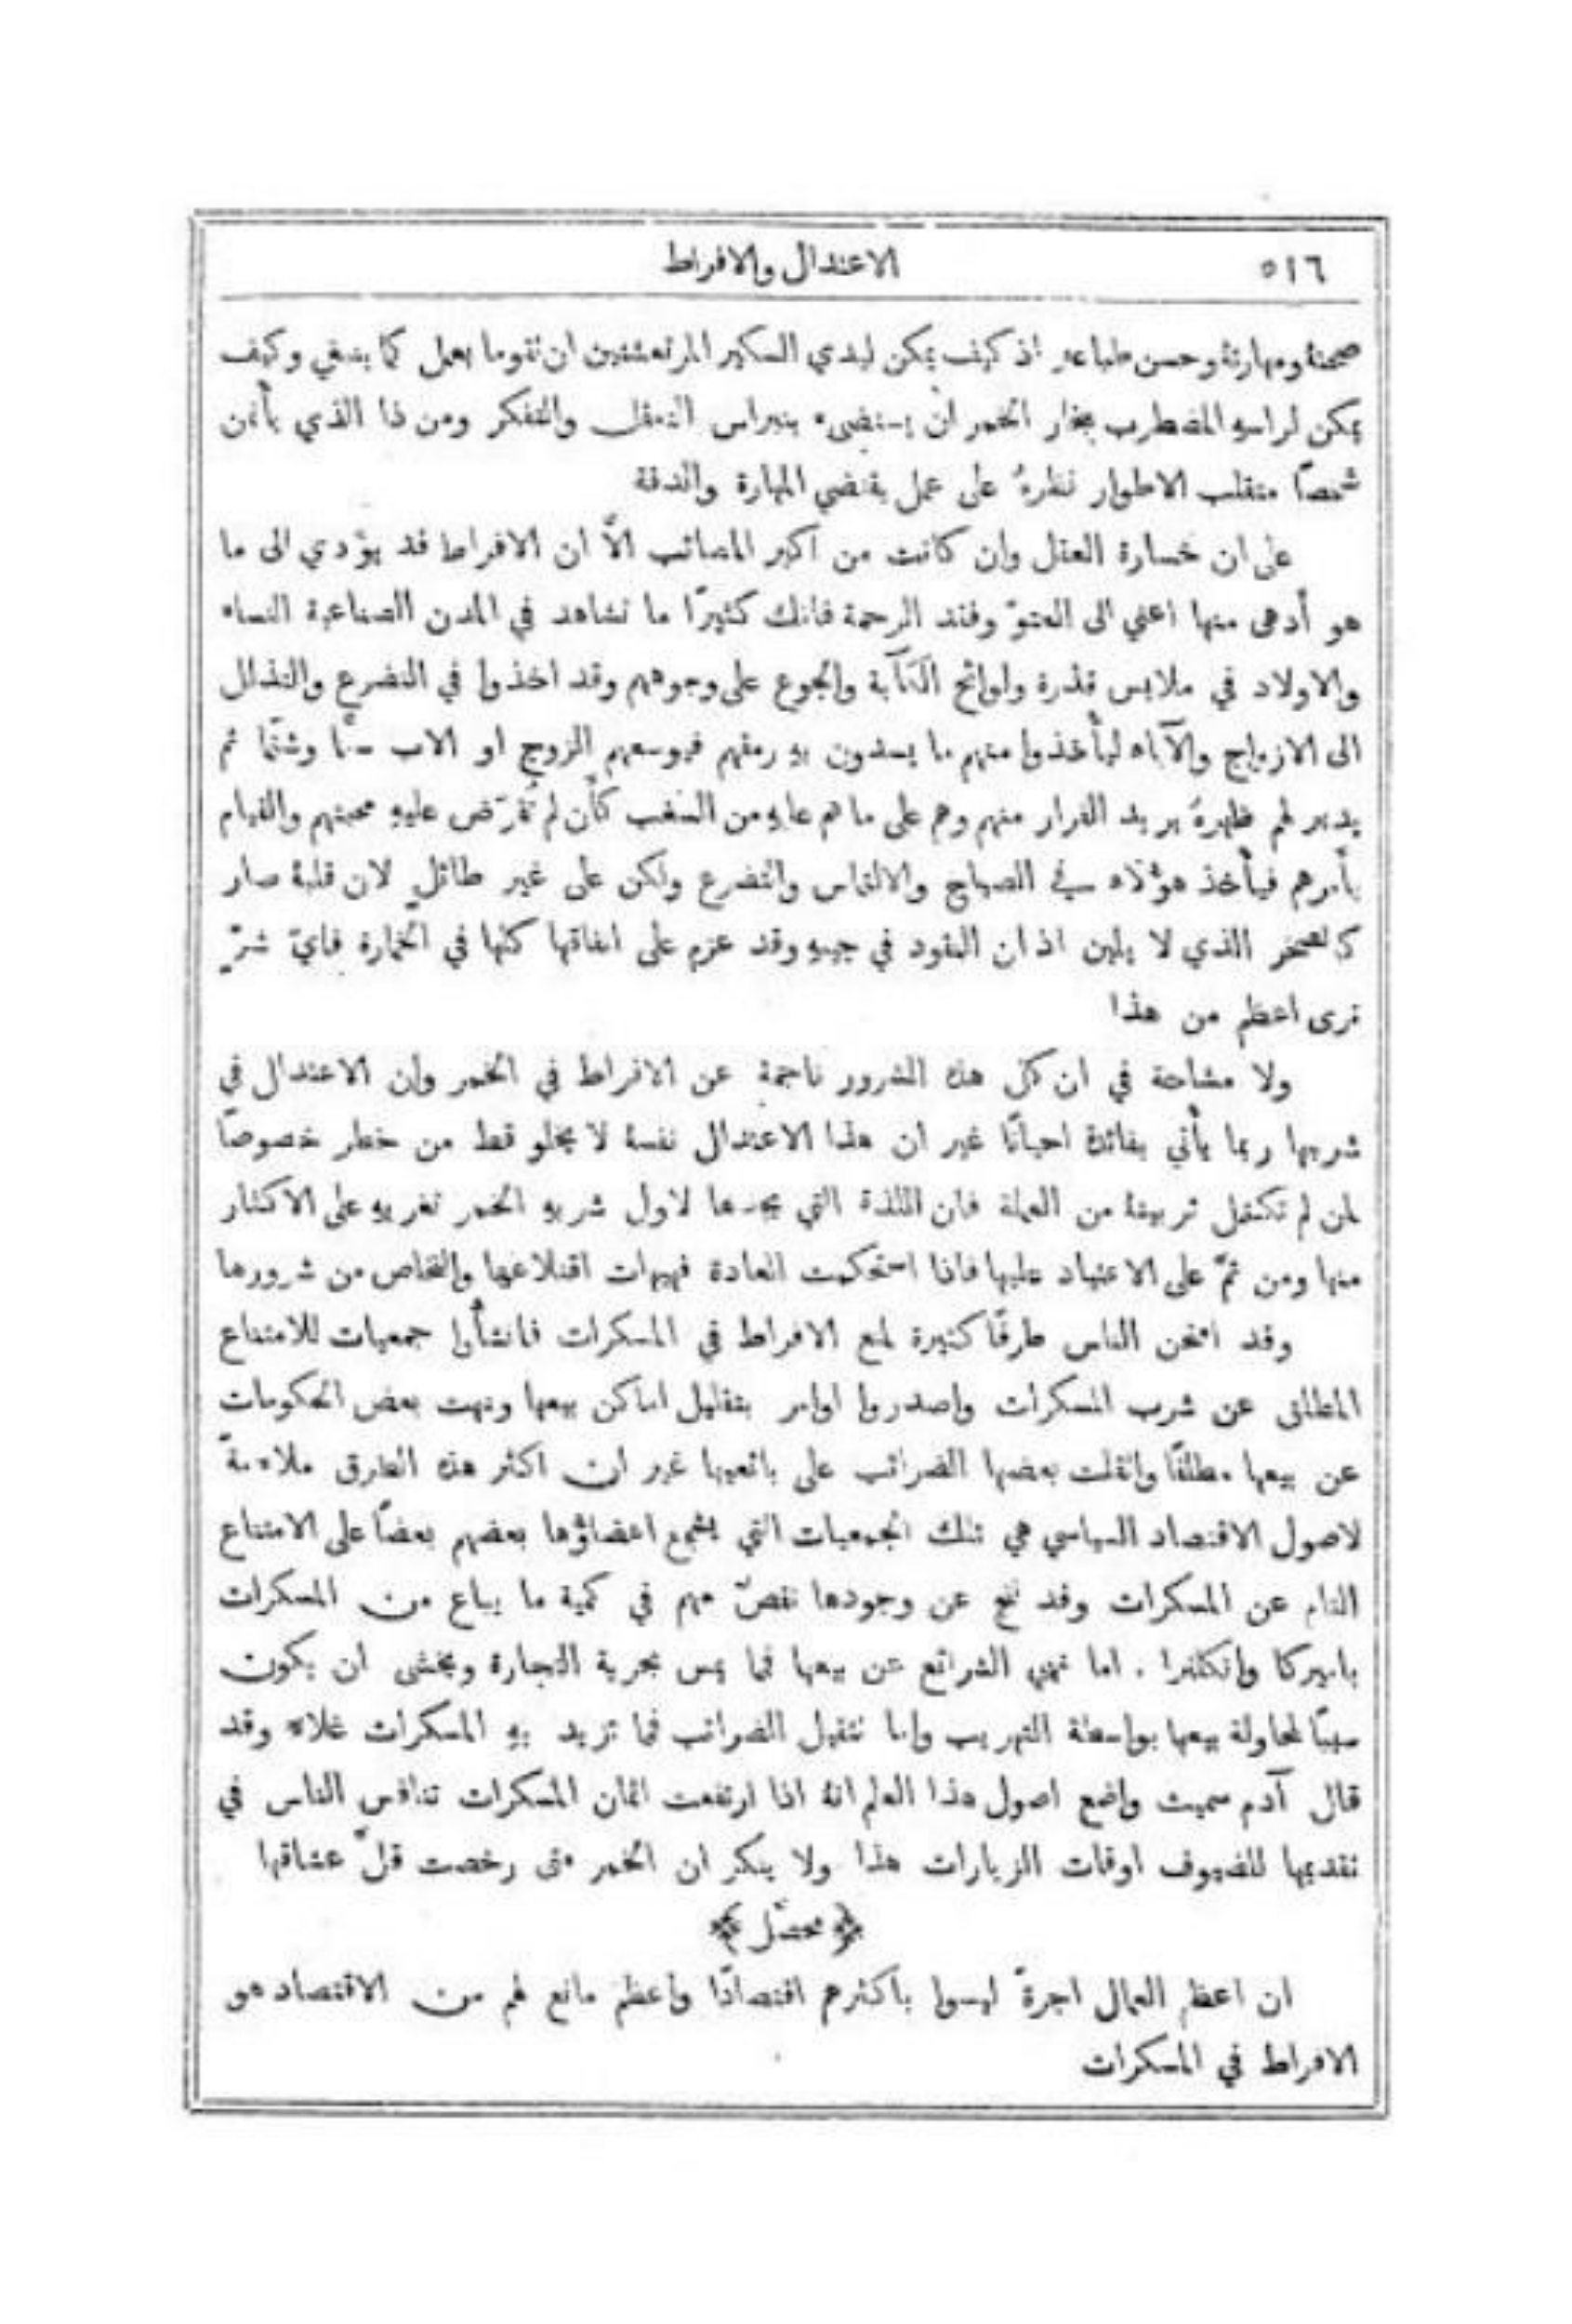 ٥١٦ الاعتدال والافراط
صحتهُ ومهارتهُ وحسن طباعهِ اذ كيف يمكن ليدي السكير المرتعشتين ان تقوما بعمل كما ينبغي وكيف
يمكن لراسهِ المضطرب بخار الخمر ان يستضيء بنبراس التعقل والتفكر ومن ذا الذي يأتمن
شخصًا متقلب الاطوار نظرهُ على عمل يقتضي المهارة والدقة
على ان خسارة العقل وان كانت من اكبر المصائب الَّا ان الافراط قد يؤدي الى ما
هو أدهى منها اعني الى العتوّ وفقد الرحمة فانك كثيرًا ما تشاهد في المدن الصناعية النساء
والاولاد في ملابس قذرة ولوائح الكَآبة والجوع على وجوههم وقد اخذوا في التضرع والتذلل
الى الازواج والآباء ليأخذوا منهم ما يسدون بهِ رمقهم فيوسعهم الزوج او الاب سبًّا وشتمًا ثم
يدير لهم ظهرهُ يريد الفرار منهم وهم على ما هم عليهِ من السغب كأَن لم تُفرَض عليهِ محبتهم والقيام
بأمرهم فيأخذ هؤلاء في الصياح والالتماس والتضرع ولكن على غير طائلٍ لان قلبهُ صار
كالصخر الذي لا يلين اذ ان النقود في جيبهِ وقد عزم على انفاقها كلها في الخمارة فايّ شرّ
ترى اعظم من هذا
ولا مشاحة في ان كل هذه الشرور ناجمة عن الافراط في الخمر وان الاعتدال في
شربها ربما يأتي بفائدة احيانًا غير ان هذا الاعتدال نفسهُ لا يخلو قط من خطر خصوصًا
لمن لم تكتمل تربيتهُ من العملة فان اللذة التي يجدها لاول شربهِ الخمر تغريهِ على الاكثار
منها ومن ثمَّ على الاعتياد عليها فاذا استحكمت العادة فهيهات اقتلاعها والتخلص من شرورها
وقد امتحن الناس طرقًا كثيرة لمنع الافراط في المسكرات فانشأوا جمعيات للامتناع
المطلق عن شرب المسكرات واصدروا اوامر بتقليل اماكن بيعها ونهت بعض الحكومات
عن بيعها مطلقًا واثقلت بعضها الضرائب على بائعيها غير ان اكثر هذه الطرق ملاءمةً
لاصول الاقتصاد السياسي هي تلك الجمعيات التي يشجع اعضاؤها بعضهم بعضًا على الامتناع
التام عن المسكرات وقد نتج عن وجودها نقصٌ مهم في كمية ما يباع من المسكرات
باميركا وانكلترا . اما نهي الشرائع عن بيعها فما يمس بحرية التجارة ويخشى ان يكون
سببًا لمحاولة بيعها بواسطة التهريب واما تثقيل الضرائب فما تزيد بهِ المسكرات غلاءً وقد
قال آدم سميث واضع اصول هذا العلم انهُ اذا ارتفعت اثمان المسكرات تنافس الناس في
تقديمها للضيوف اوقات الزيارات هذا ولا ينكر ان الخمر متى رخصت قلَّ عشاقها
﴿ محصَّل ﴾
ان اعظم العمال اجرةً ليسوا باكثرهم اقتصادًا واعظم مانع لهم من الاقتصاد هو
الافراط في المسكرات